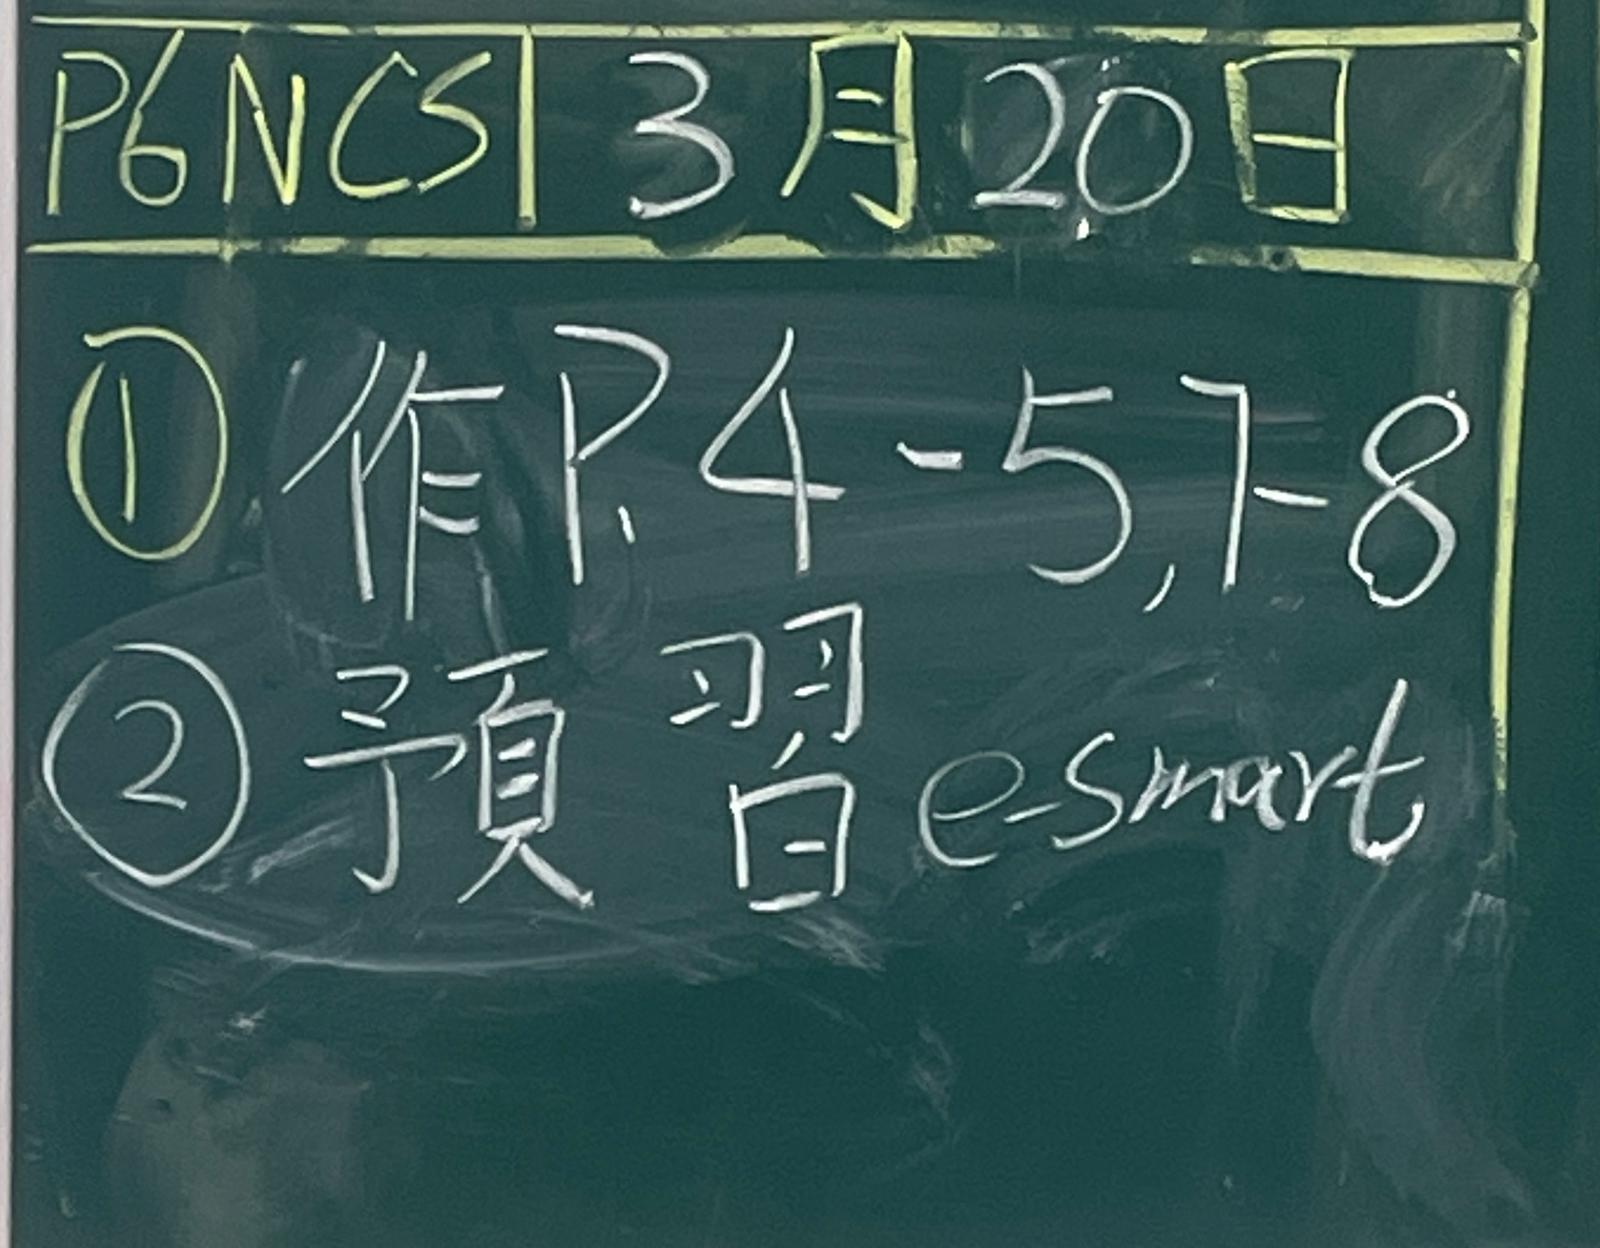 P6NCS 3月20日
① 作P.4-5,7-8
② 預習 e-smart